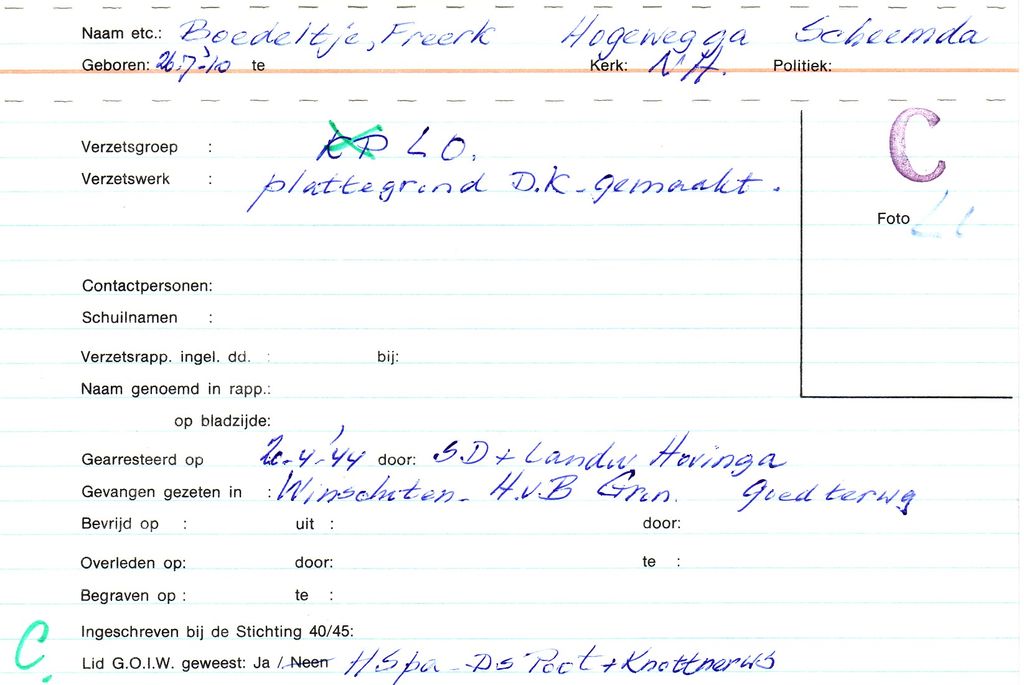 Naam etc.: Boedeltje, Freerk Hogeweg 9a Scheemda
Geboren: 26-7-'10 te Kerk: N.H. Politiek:
C
Verzetsgroep : KP L O.
Verzetswerk : plattegrond D.K. gemaakt.
Foto
Contactpersonen:
Schuilnamen :
Verzetsrapp. ingel. dd. : bij:
Naam genoemd in rapp.:
op bladzijde:
Gearresteerd op -4-'44 door: S.D + Landw Hovinga
Gevangen gezeten in : Winschoten - H.v.B Gron.
Bevrijd op : uit : door:
Overleden op: door: te :
Begraven op : te :
Ingeschreven bij de Stichting 40/45:
C. Lid G.O.I.W. geweest: Ja / Neen - Ds Poot + Knottnerus